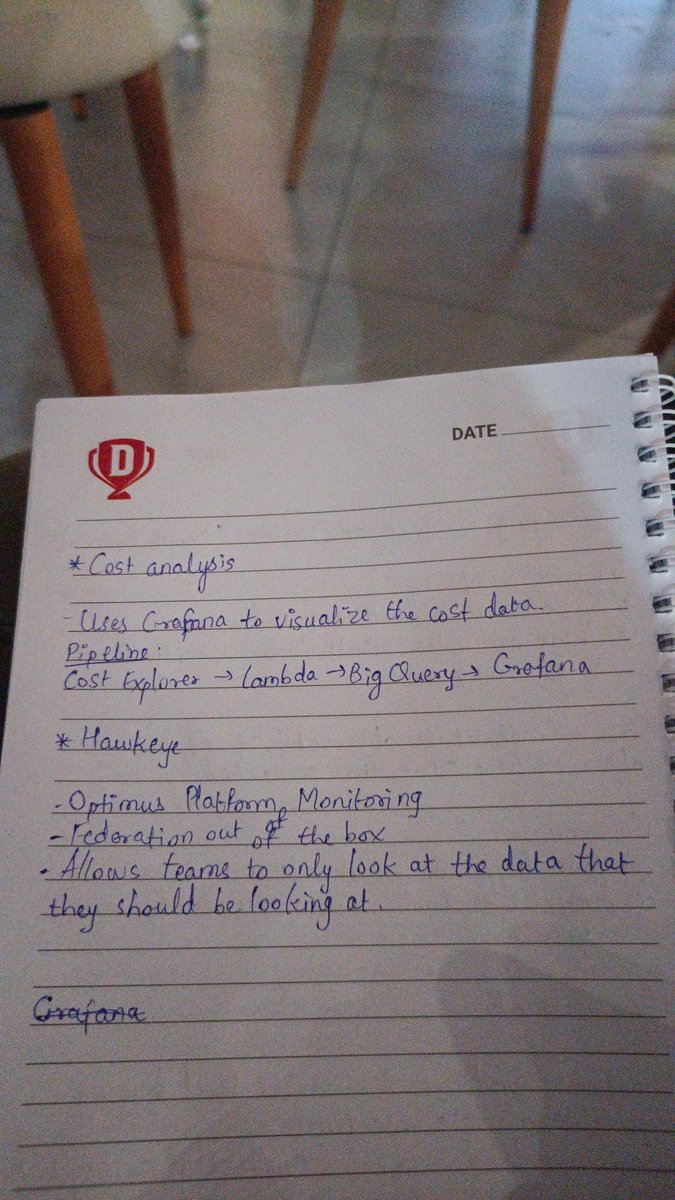 D
DATE
* Cost analysis
- Uses Grafana to visualize the cost data.
Pipeline:
Cost Explorer → Lambda → Big Query → Grafana
* Hawkeye
- Optimus Platform Monitoring
- Federation out of the box
- Allows teams to only look at the data that
they should be looking at.
Grafana